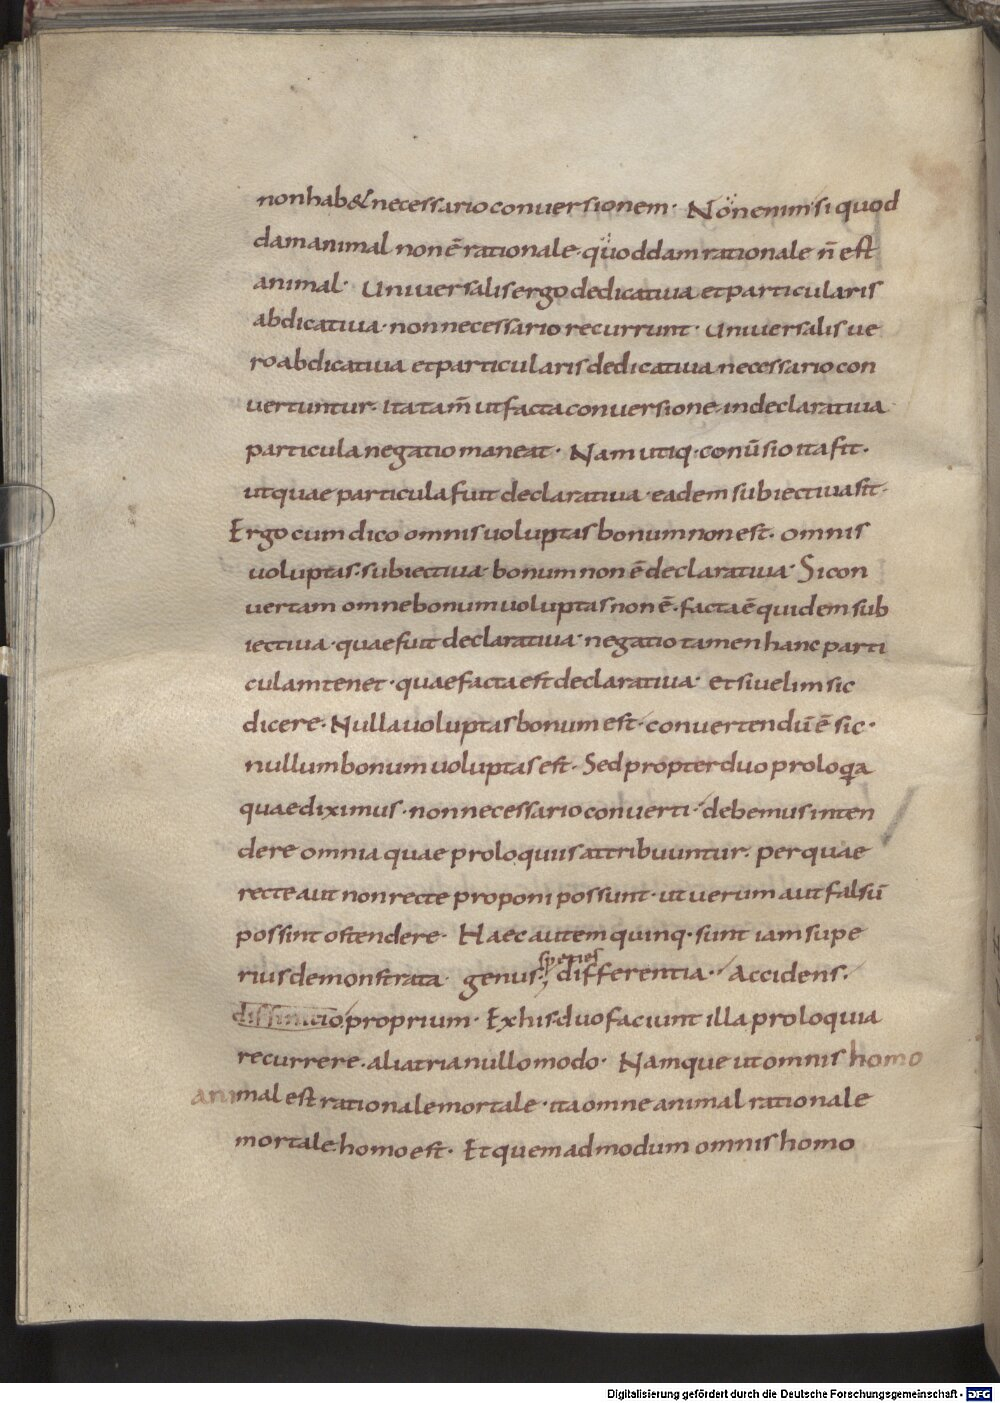 non hab& necessario conuersionem· Non enim si quod
dam animal non ē rationale· quoddam rationale n̄ est
animal· Uniuersalis ergo dedicatiua et particularis
abdicatiua· non necessario recurrunt· Uniuersalis ue
ro abdicatiua et particularis dedicatiua necessario con
uertuntur· ita tam̄ ut facta conuersione in declaratiua
particula negatio maneat· Nam utiq· conūsio ita fit·
ut quae particula fuit declaratiua· eadem subiectiua sit·
Ergo cum dico omnis uoluptas bonum non est· omnis
uoluptas· subiectiua· bonum non ē declaratiua· Si con
uertam omne bonum uoluptas non ē· facta ē quidem sub
iectiua· quae fuit declaratiua· negatio tamen hanc parti
culam tenet· quae facta est declaratiua· et si uelim sic
dicere· Nulla uoluptas bonum est· conuertendū ē sic·
nullum bonum uoluptas est· Sed propter duo proloqa
quae diximus· non necessario conuerti· debemus inten
dere omnia quae proloquiis attribuuntur· per quae
recte aut non recte proponi possunt· ut uerum aut falsū
possint ostendere· Haec autem quinq· sunt iam supe
rius demonstrata genus· species differentia· Accidens·
diffinitio proprium· Ex his duo faciunt illa proloquia
recurrere· alia tria nullo modo· Namque ut omnis homo
animal est rationale mortale· ita omne animal rationale
mortale homo est· Et quemadmodum omnis homo
Digitalisierung gefördert durch die Deutsche Forschungsgemeinschaft - DFG